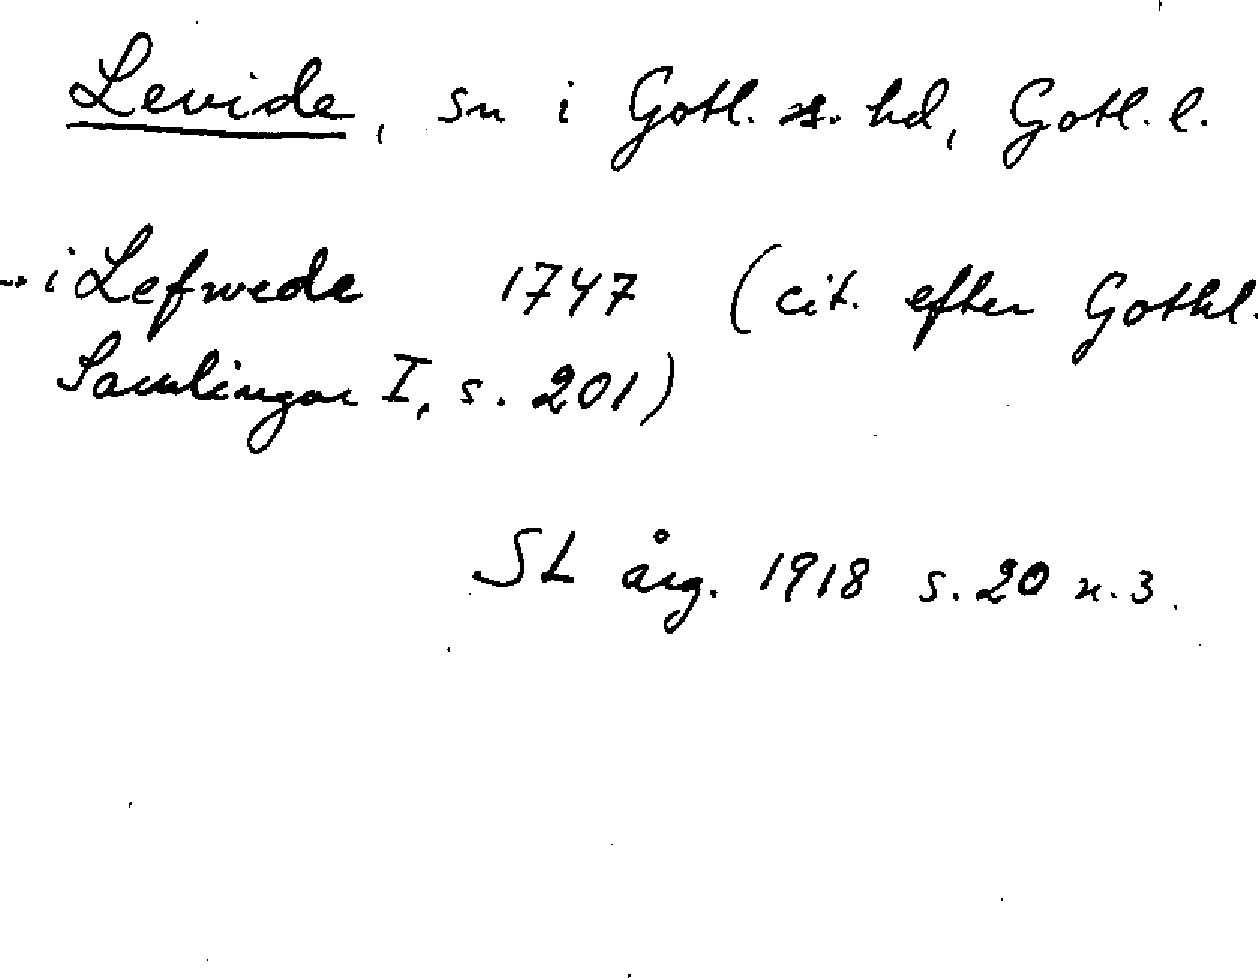 Levide, sn i Gotl. s. hd, Gotl. l.
.. i Lefwede 1747 (cit. efter Gothl.
Samlingar I, s. 201)
SL årg. 1918 s. 20 n. 3.